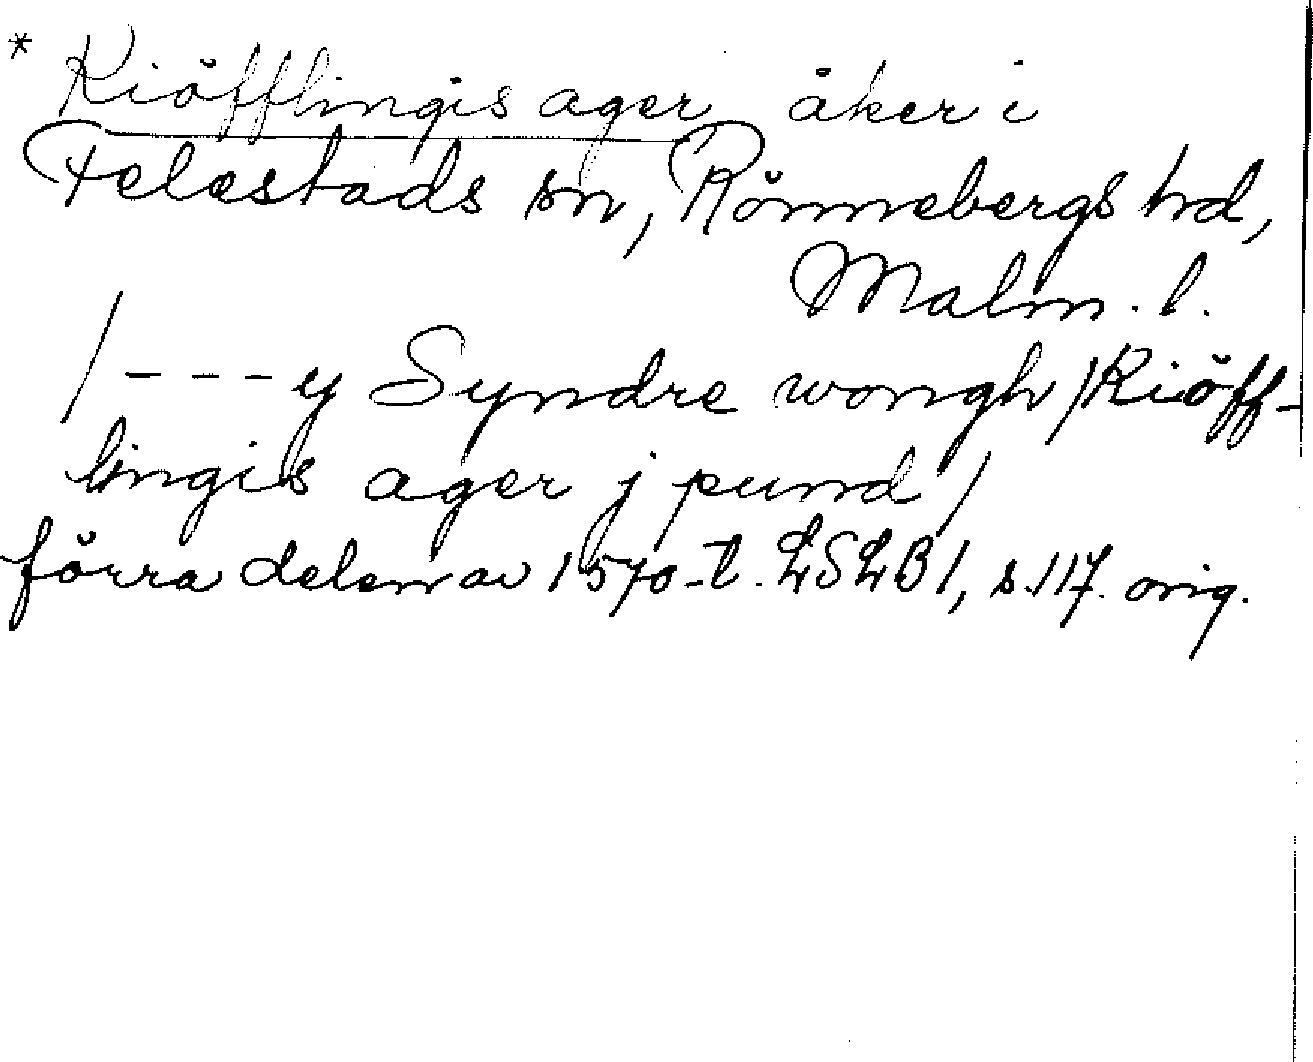 * Kiöfflingis ager, åker i
Felestads sn, Rönnebergs hd,
Malm. l.
/ - - - y Syndre wongh / Kiöff-
lingis ager j pund /
förra delen av 1570-t. LSLB 1, s. 117. orig.